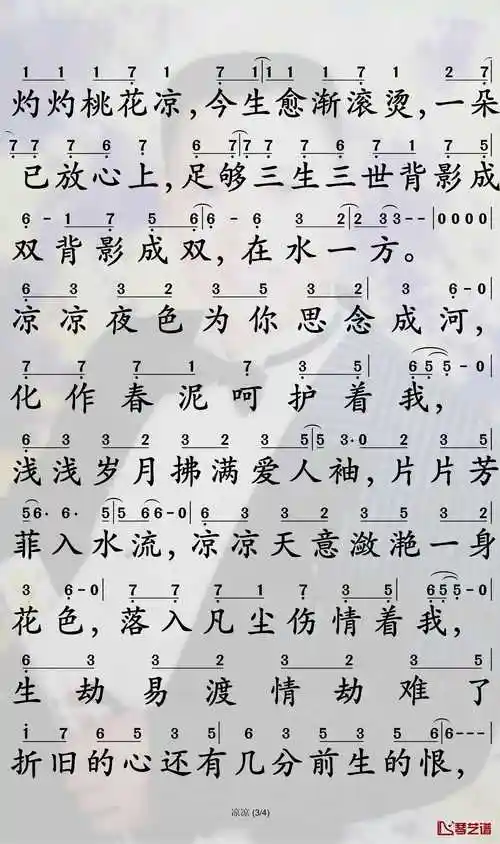 1 1 1 7 1 7 1 1 1 1 7 1 2 7
灼灼桃花凉,今生愈渐滚烫,一朵
7 7 7 6 7 6 7 7 7 6 7 7 5
已放心上,足够三生三世背影成
6 - 1 7 5 6 6 - 6 3 2 2 3 3 - - 0 0 0 0
双背影成双,在水一方。
6 3 3 2 3 2 3 5 2 3 6 - 0
凉凉夜色为你思念成河,
7 7 7 1 7 3 5 6 5 5 - 0
化作春泥呵护着我,
6 3 3 2 3 2 3 5 5 5 3 · 0 2 3 5
浅浅岁月拂满爱人袖,片片芳
5 6 · 6 · 5 5 6 6 - 0 6 3 3 2 3 2 3 5
菲入水流,凉凉天意潋滟一身
3 6 - 0 7 7 7 1 7 3 5 6 5 5 - 0
花色,落入凡尘伤情着我,
6 3 3 2 3 2 3 5
生劫易渡情劫难了
i 7 6 5 3 5 6 3 5 3 5 6 6 - - -
折旧的心还有几分前生的恨,
凉凉 (3/4)
琴艺谱